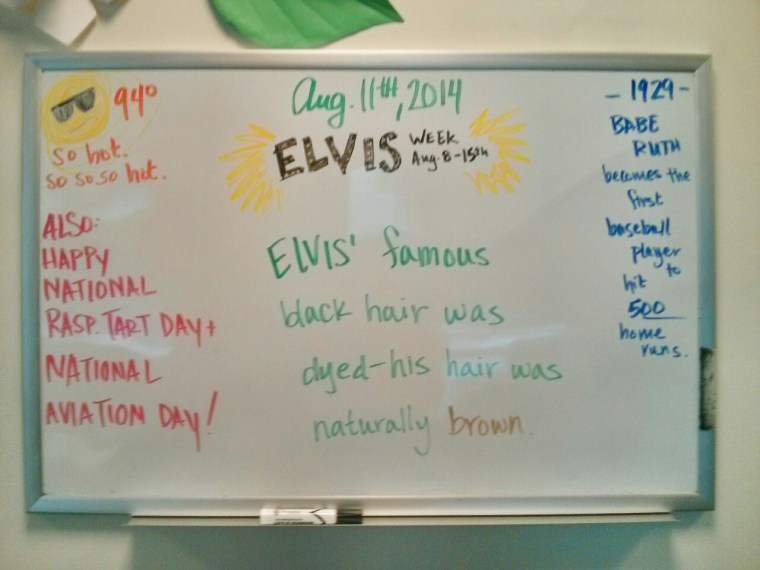 94°
So hot.
so so so hot.
ALSO:
HAPPY
NATIONAL
RASP. TART DAY+
NATIONAL
AVIATION DAY!
Aug. 11th, 2014
ELVIS WEEK
Aug. 8-15th
ELVIS' famous
black hair was
dyed-his hair was
naturally brown.
- 1929 -
BABE
RUTH
becomes the
first
baseball
player
to
hit
500
home
runs.